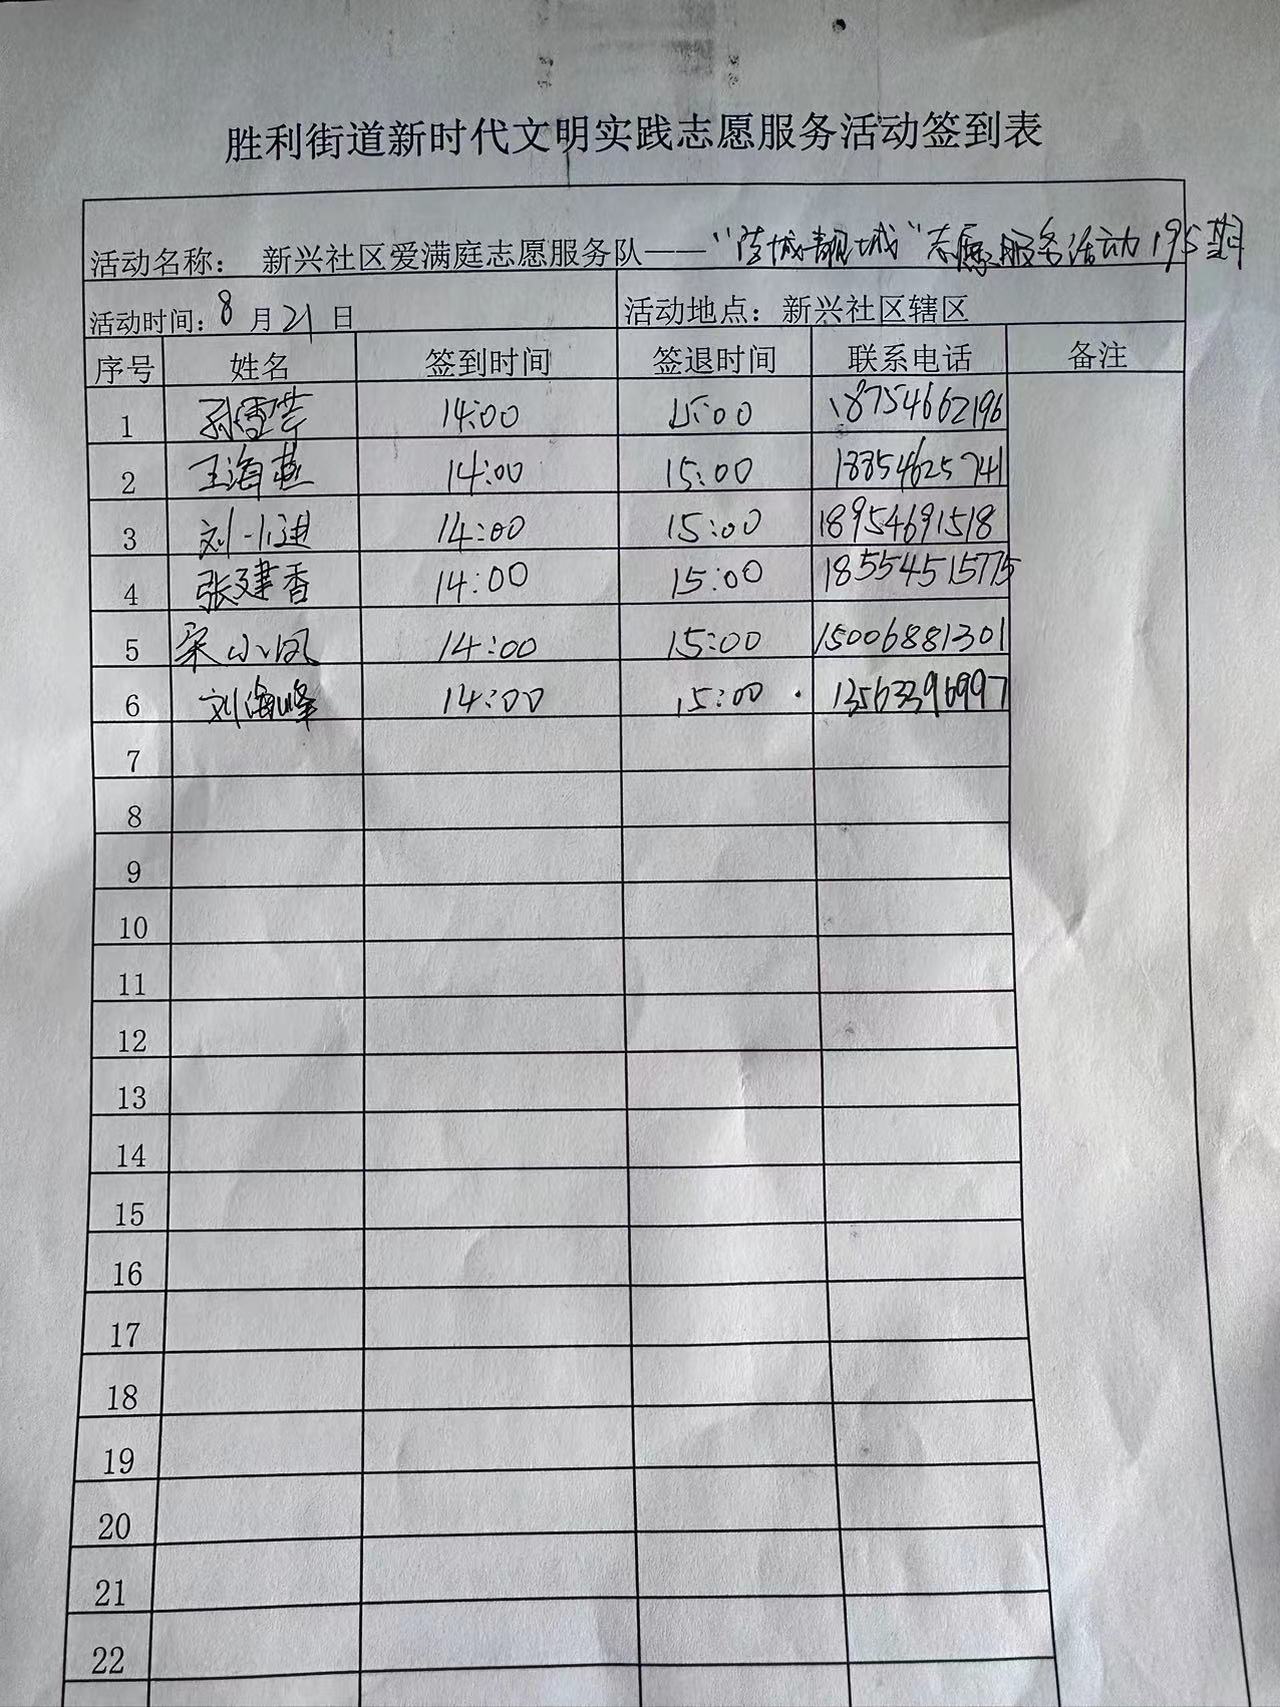 胜利街道新时代文明实践志愿服务活动签到表
活动名称： 新兴社区爱满庭志愿服务队——“ 城靓城”志愿服务活动195期
活动时间：8月21日 活动地点：新兴社区辖区
序号 姓名 签到时间 签退时间 联系电话 备注
1 孙雪芹 14:00 15:00 18754662196
2 王海燕 14:00 15:00 18854625741
3 刘 进 14:00 15:00 18954691518
4 张建香 14:00 15:00 18554515775
5 宋小凤 14:00 15:00 15006881301
6 刘海峰 14:00 15:00 13563396997
7
8
9
10
11
12
13
14
15
16
17
18
19
20
21
22